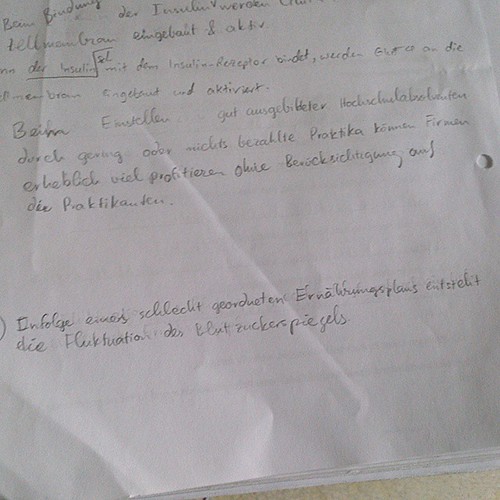 Beim Bindung der Insulin werden
Zellmembran eingebaut & aktiv
nn der Insulin mit dem Insulin-Rezeptor bindet, werden an die
membran eingebaut und aktiviert.
Beihm Einstellen gut ausgebildeter Hochschulabsolventen
durch gering oder nichts bezahlte Praktika können Firmen
erheblich viel profitieren ohne Berücksichtigung auf
die Praktikanten.
) Infolge eines schlecht geordneten Ernährungsplans entsteht
die Fluktuation des Blutzuckerspiegels.